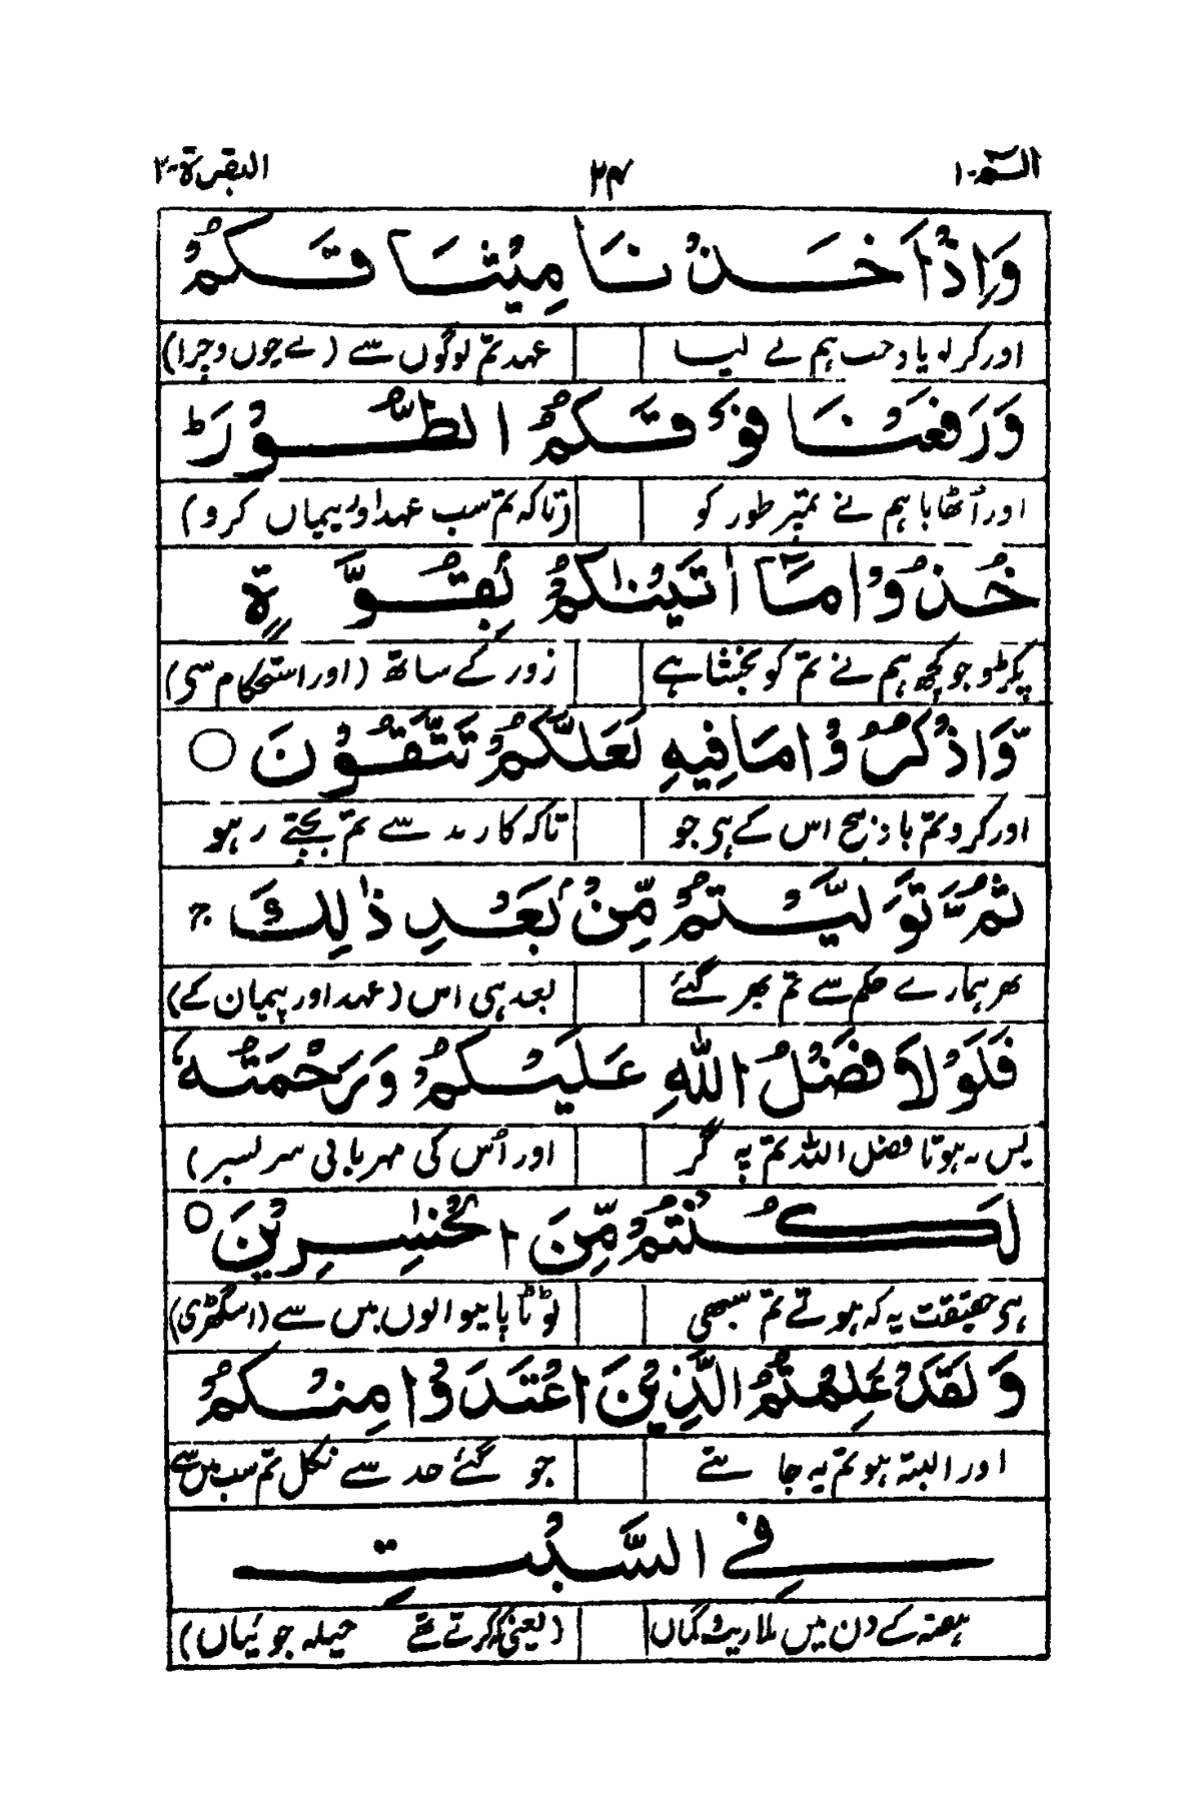 الٓمّٓ-۱ ۲۴ البقرة-۲
وَاِذْ اَخَذْنَا مِيْثَاقَكُمْ
اور کر لو یاد جب ہم نے لیا عہد تم لوگوں سے (بے چوں و چرا)
وَرَفَعْنَا فَوْقَكُمُ الطُّوْرَ ؕ
اور اُٹھایا ہم نے تمپر طور کو (تاکہ تم سب عہد اور پیماں کرو)
خُذُوْا مَآ اٰتَيْنٰكُمْ بِقُوَّةٍ
پکڑو جو کچھ ہم نے تم کو بخشا ہے زور کے ساتھ (اور استحکام سی)
وَّاذْكُرُوْا مَا فِيْهِ لَعَلَّكُمْ تَتَّقُوْنَ ○
اور کرو تم یاد اس کے ہی جو تاکہ کار بد سے تم بچتے رہو
ثُمَّ تَوَلَّيْتُمْ مِّنْۢ بَعْدِ ذٰلِكَ ۚ
پھر ہمارے حکم سے تم پھر گئے بعد ہی اس (عہد اور پیمان کے)
فَلَوْلَا فَضْلُ اللّٰهِ عَلَيْكُمْ وَرَحْمَتُهٗ
پس نہ ہوتا فضل اللہ تم پہ گر اور اُس کی مہربانی سر بسر)
لَكُنْتُمْ مِّنَ الْخٰسِرِيْنَ ○
ہی حقیقت یہ کہ ہوتے تم سبھی ٹوٹا پانیوالوں میں سے (اسگھڑی)
وَلَقَدْ عَلِمْتُمُ الَّذِيْنَ اعْتَدَوْا مِنْكُمْ
اور البتہ ہو تم یہ جانتے جو گئے حد سے نکل تم سب میں سے
فِي السَّبْتِ
ہفتہ کے دن میں بلا ریب و گماں (یعنی کرتے تھے حیلہ جوئیاں)